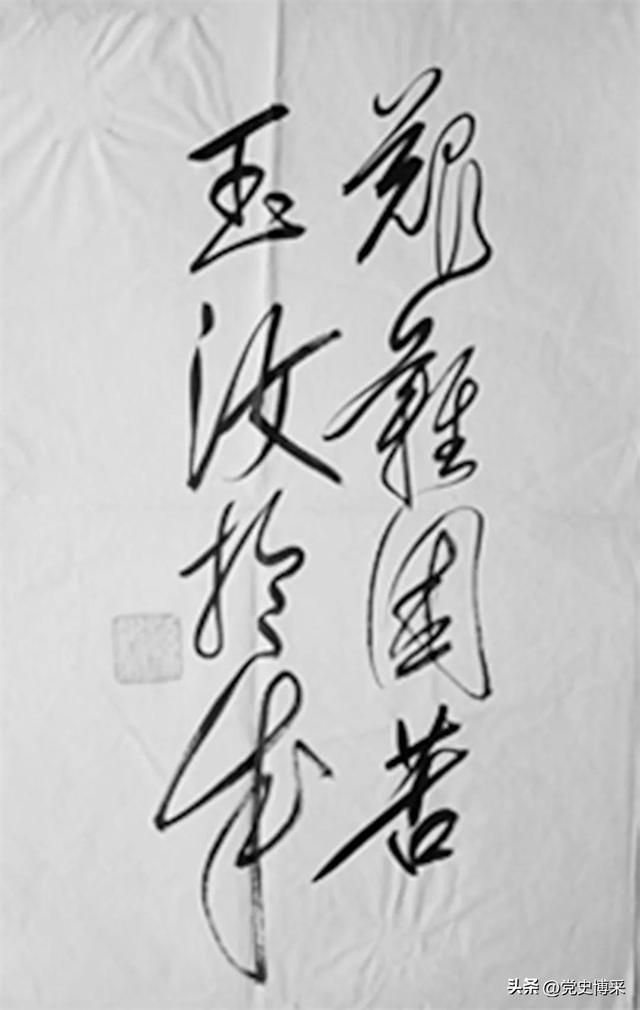 艱難困苦
玉汝於成
头条 @党史博采